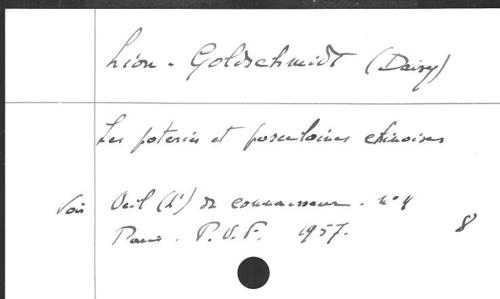 Lion-Goldschmidt (Daisy)
Les poteries et porcelaines chinoises
Voir Oeil (L') du connaisseur. n°4
Paris. P.U.F. 1957. 8